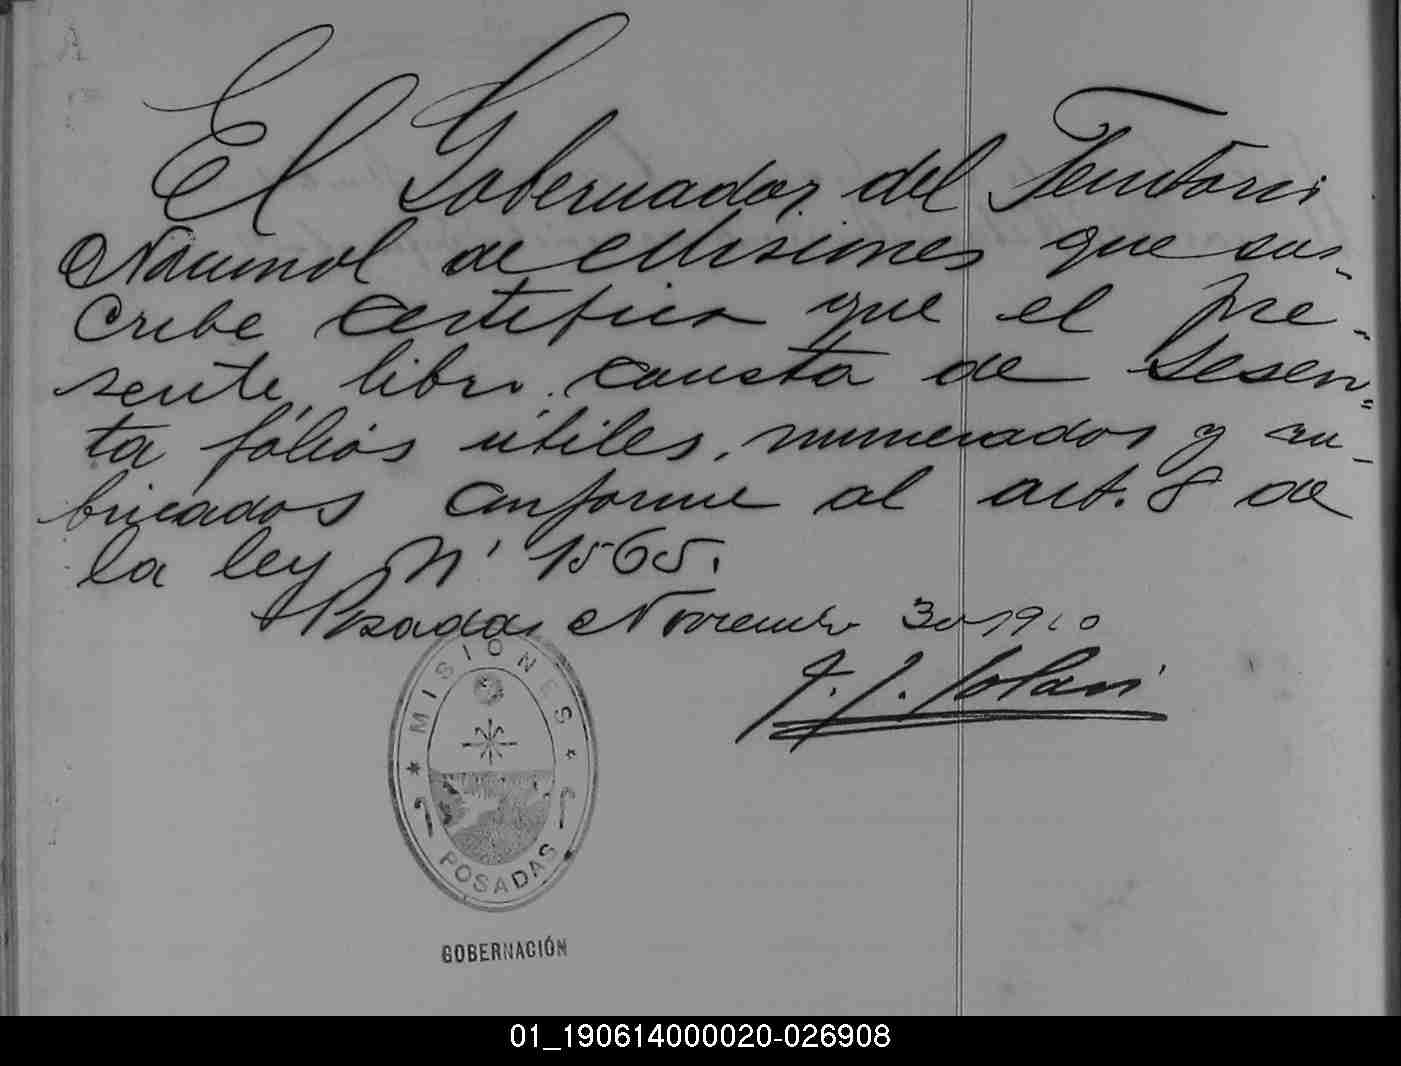 El Gobernador del Territorio
Nacional de Misiones que sus-
cribe certifica que el pre-
sente libro consta de sesen=
ta fólios útiles, numerados y ru-
bricados conforme al art. 8 de
la ley Nº 1565.
Posadas Noviembre 30 1910
J. J. Lolari
MISIONES
POSADAS
GOBERNACIÓN
01_190614000020-026908